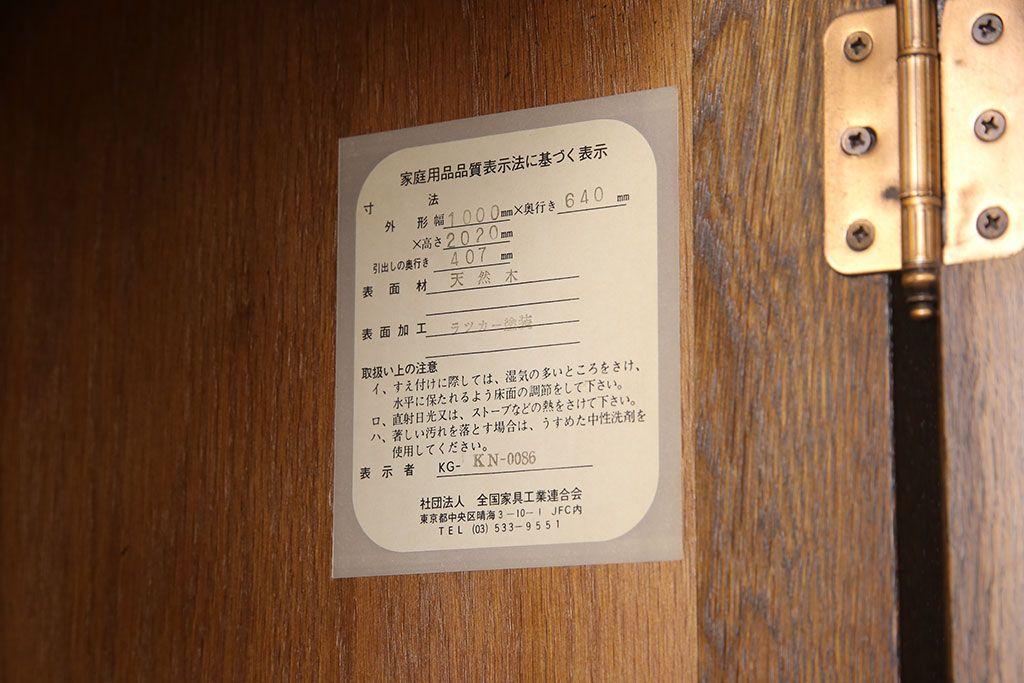 家庭用品品質表示法に基づく表示
寸法
外形 幅1000mm×奥行き640mm
×高さ2020mm
引出しの奥行き 407mm
表面材 天然木
表面加工 ラツカー塗装
取扱い上の注意
イ、すえ付けに際しては、湿気の多いところをさけ、
水平に保たれるよう床面の調節をして下さい。
ロ、直射日光又は、ストーブなどの熱をさけて下さい。
ハ、著しい汚れを落とす場合は、うすめた中性洗剤を
使用してください。
表示者 KG-KN-0086
社団法人 全国家具工業連合会
東京都中央区晴海3-10-1 JFC内
TEL (03) 533-9551